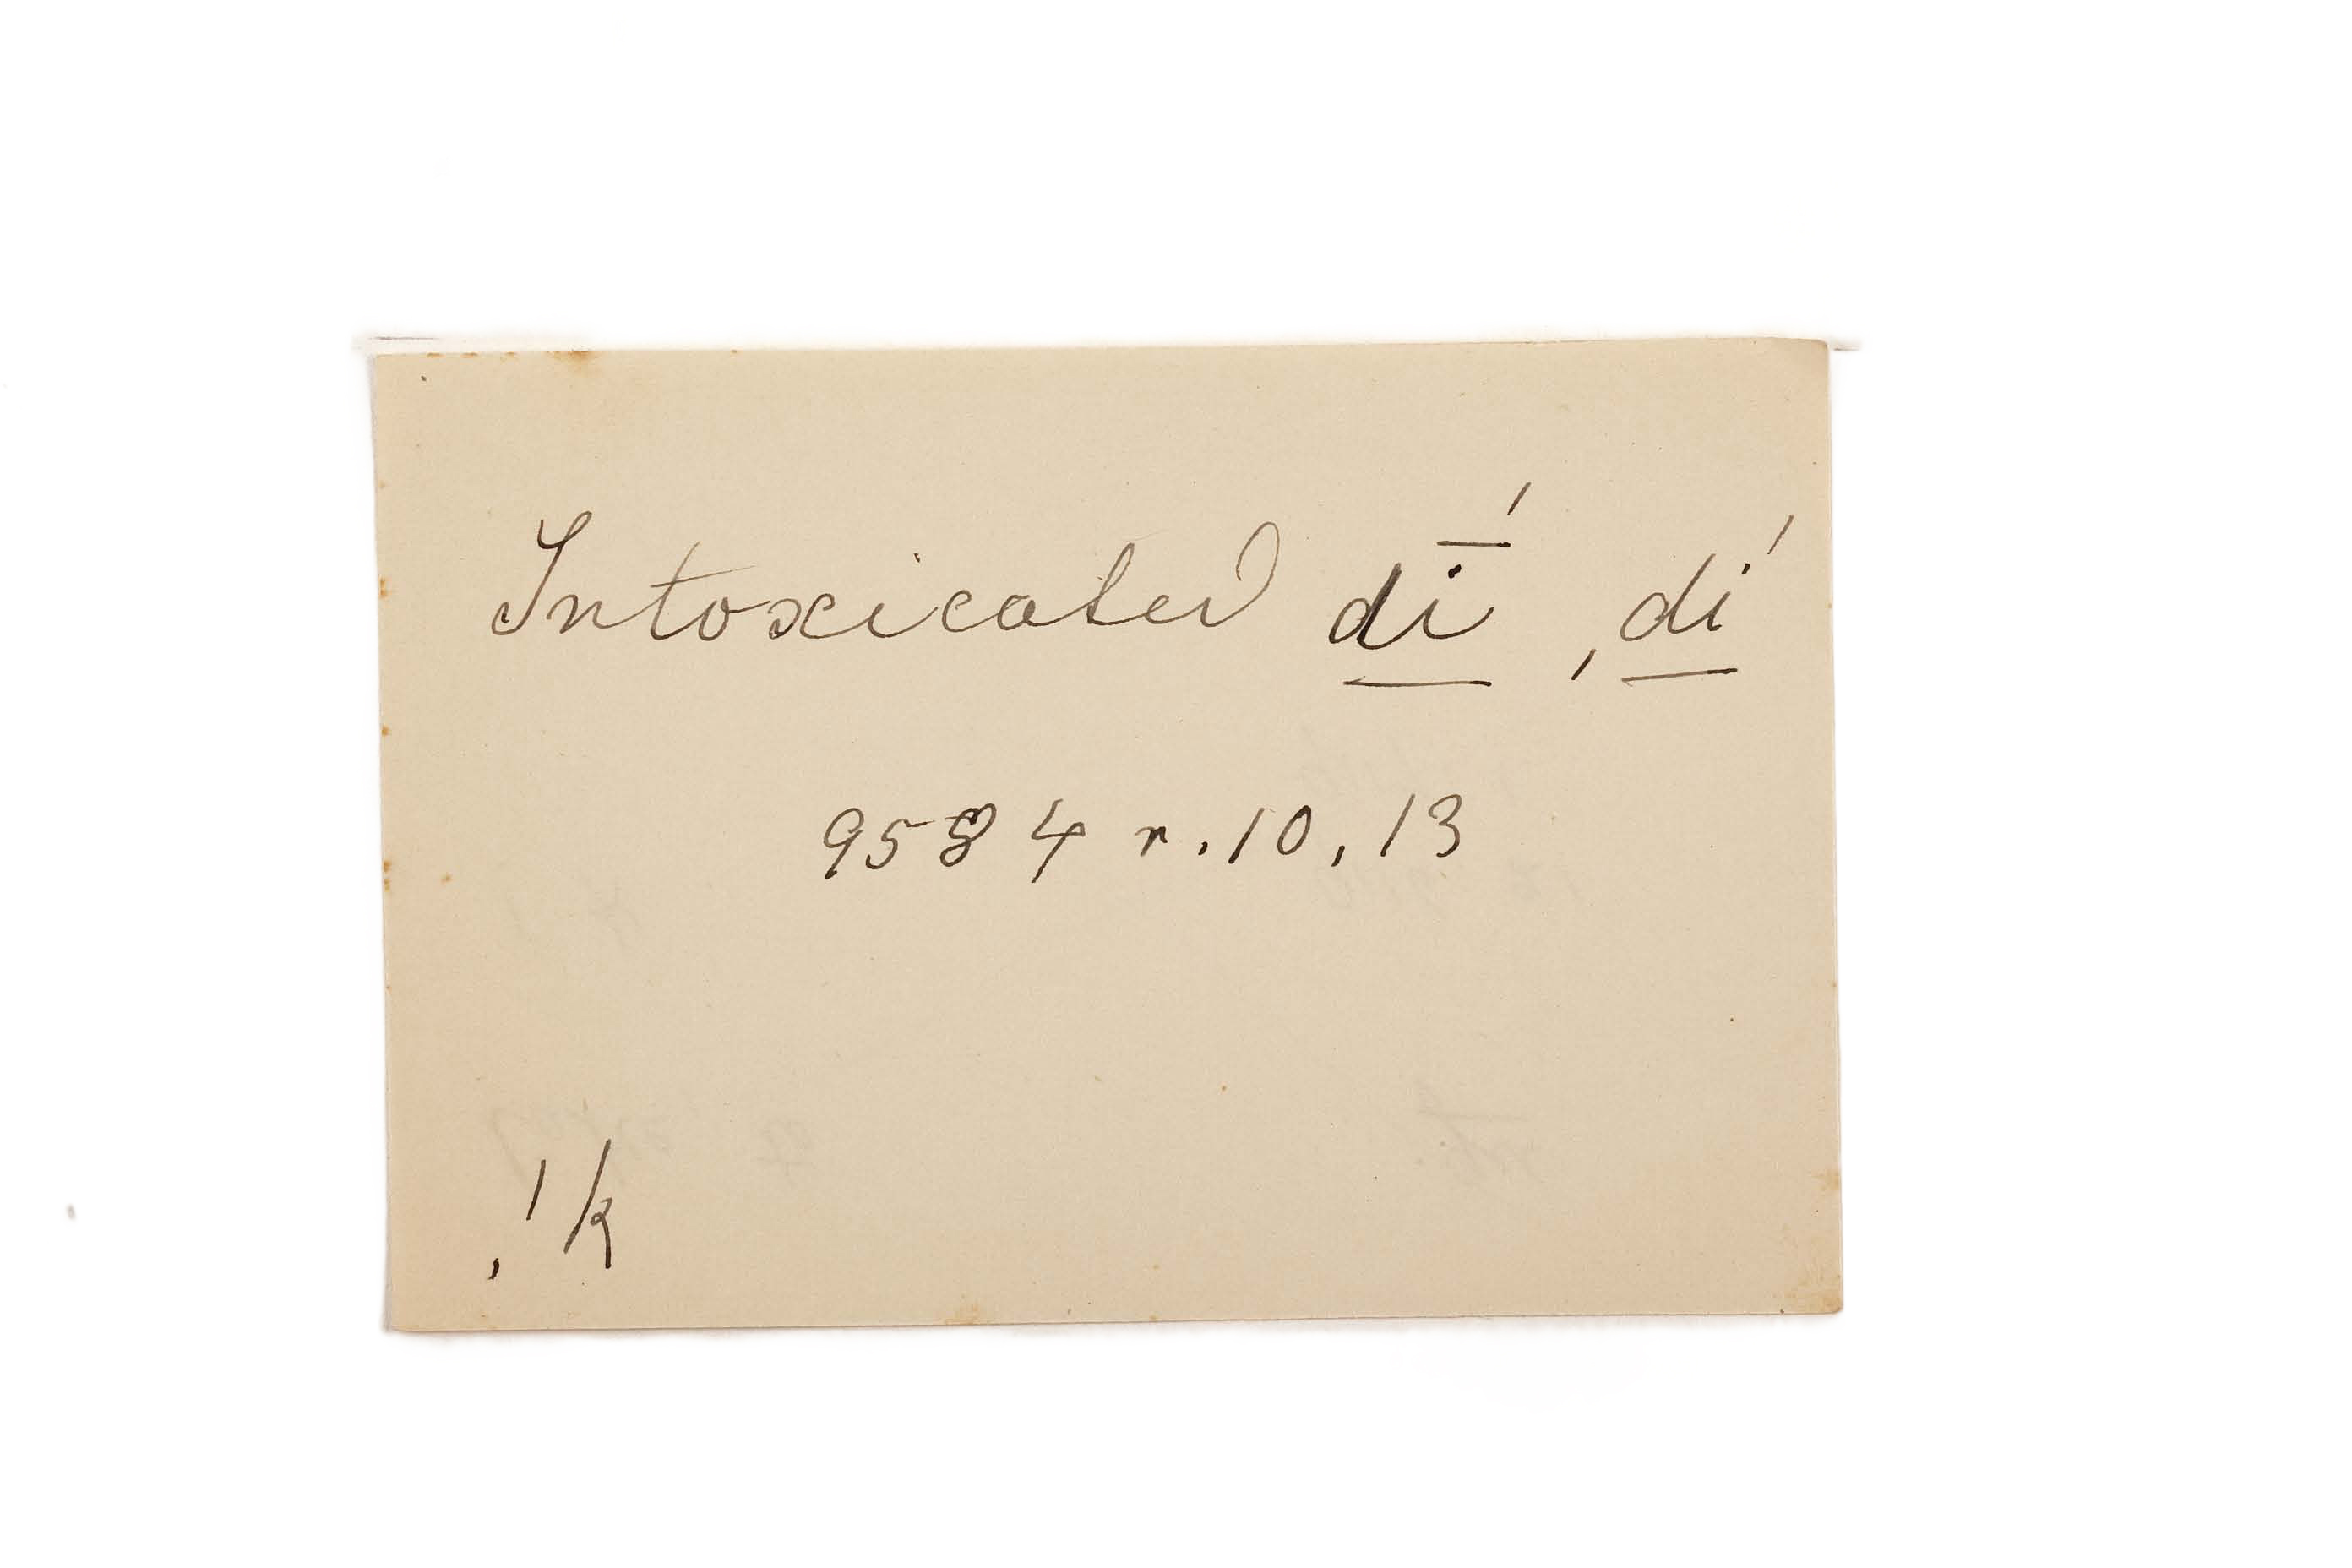 Intoxicated dī́, dí
9584 r. 10, 13
!k